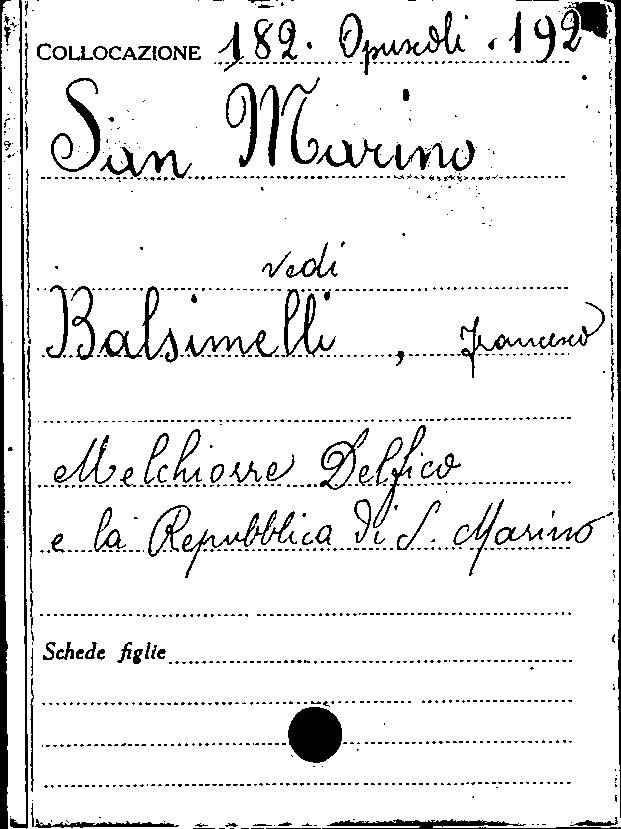 COLLOCAZIONE 182. Opuscoli . 192
San Marino
vedi
Balsimelli , Francesco
Melchiorre Delfico
e la Repubblica di S. Marino
Schede figlie